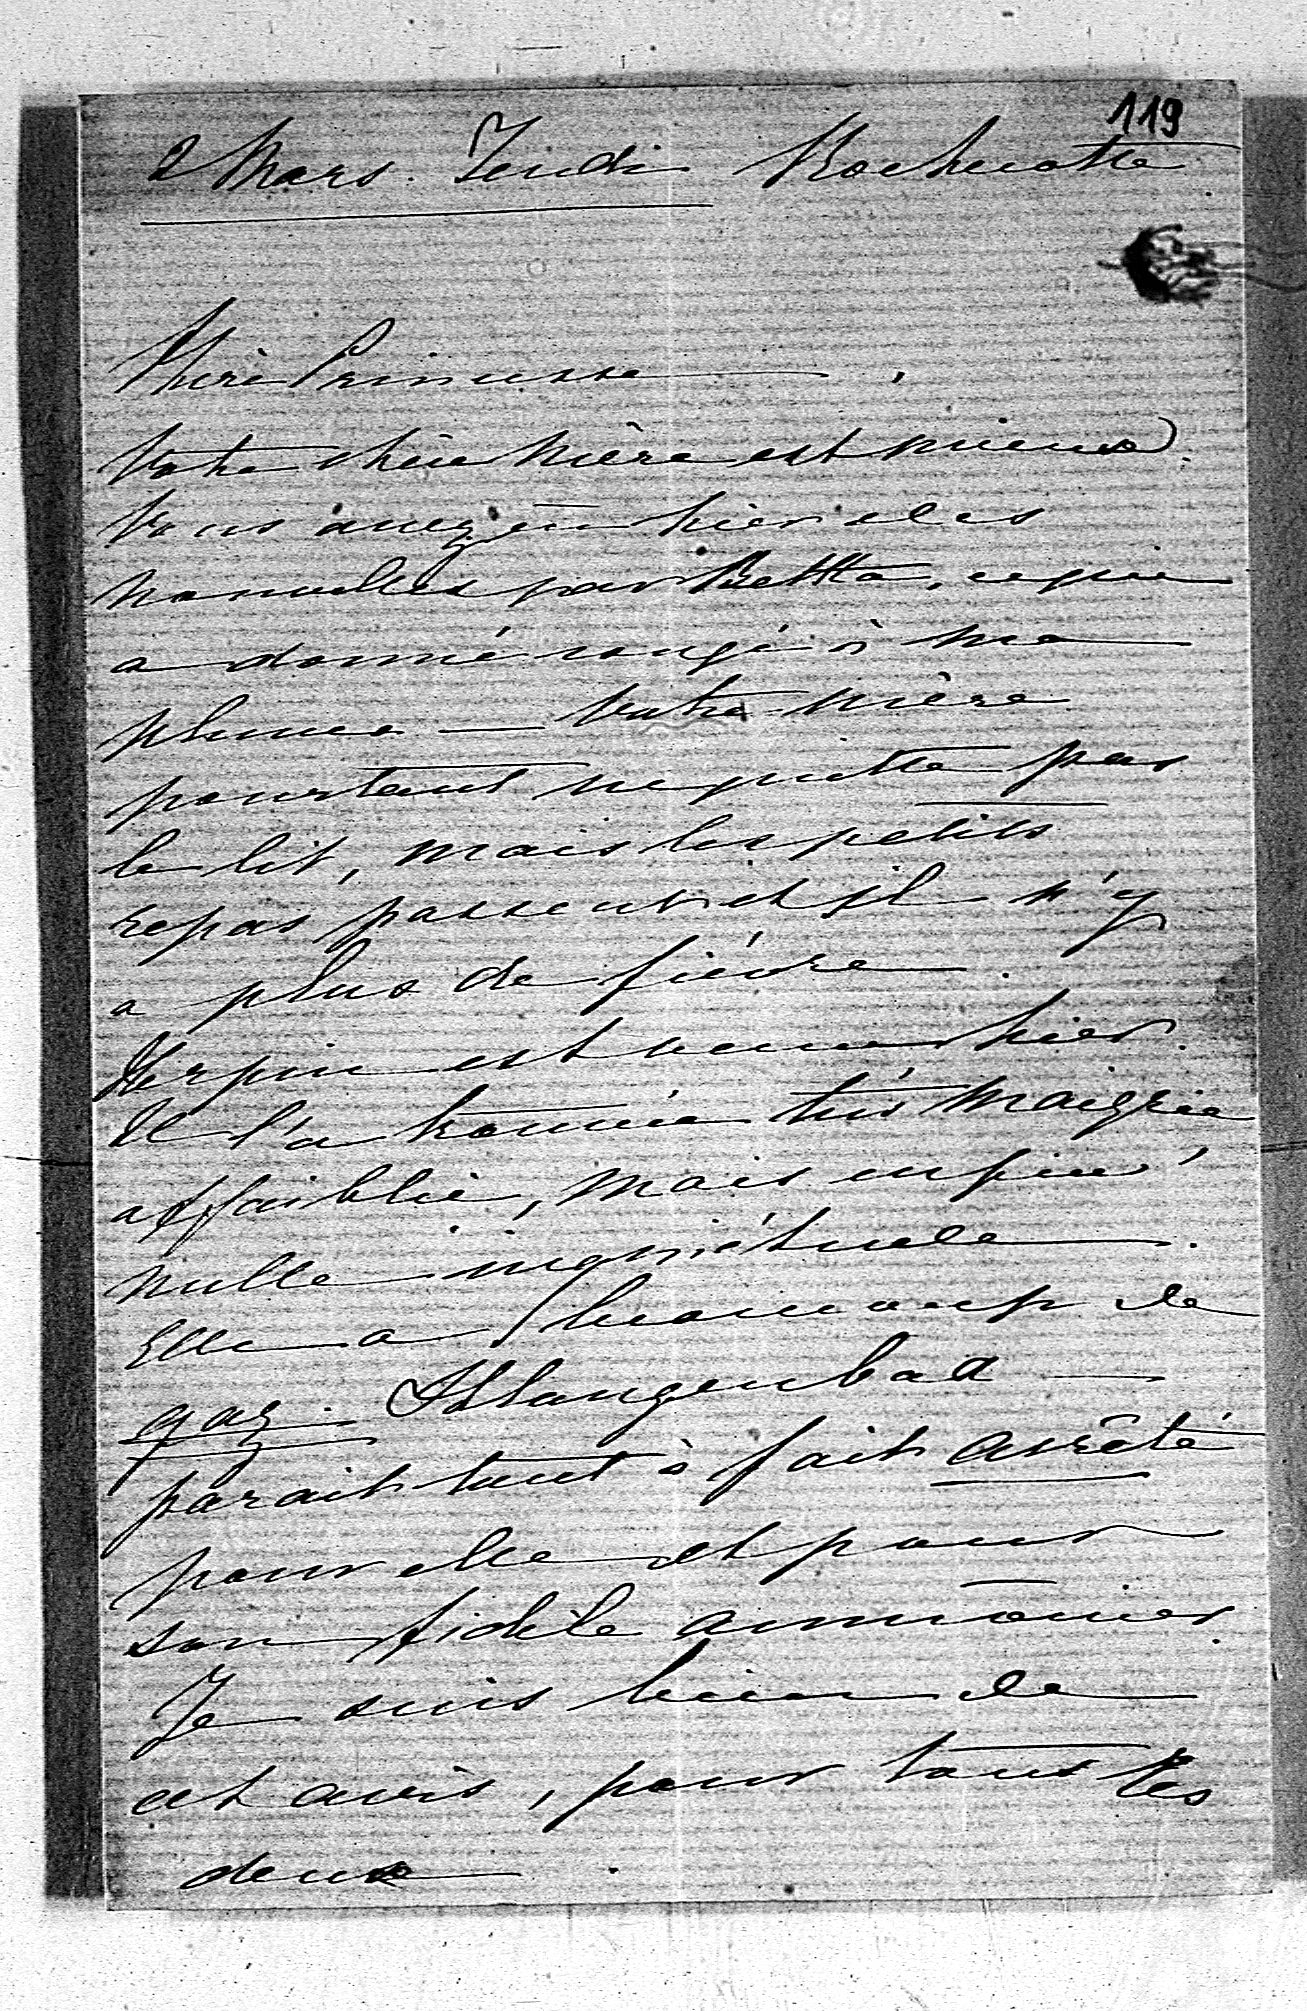 119
2 Mars. Jeudi Rochecotte
Chère Princesse,
Votre chère Mère est mieux.
Vous avez eu hier des
nouvelles par Betta, ce qui
a donné congé à ma
plume — Votre mère
pourtant ne quitte pas
le lit, mais les petits
repas passent et il n'y
a plus de fièvre.
Herpin est venu hier.
Il l'a trouvée très maigrie
affaiblie, mais enfin
nulle inquiétude.
Elle a beaucoup de
gaz. Schlangenbad —
parait tout à fait arrêté
pour elle et pour
son fidèle aumônier.
Je suis bien de
cet avis, pour tous les
deux.